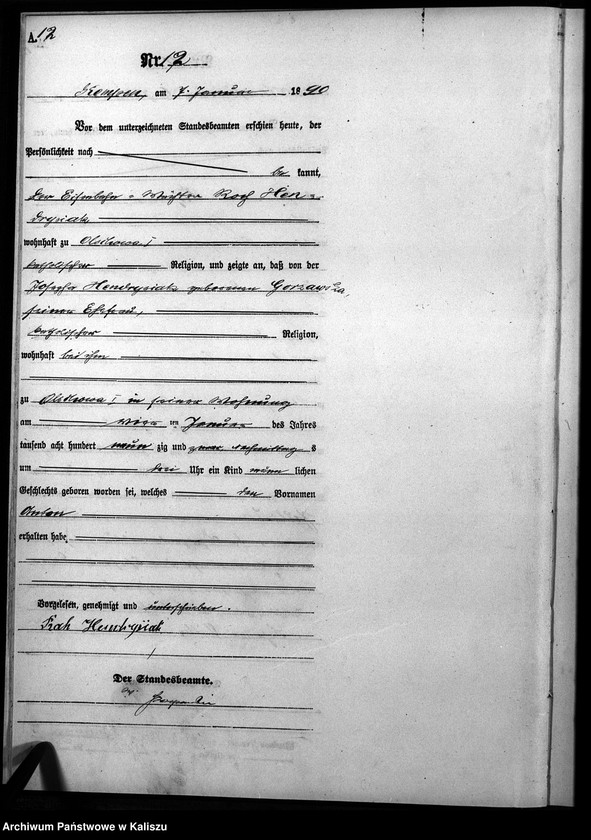 A.12
Nr. 12
Kempen, am 7. Januar 1890
Vor dem unterzeichneten Standesbeamten erschien heute, der
Persönlichkeit nach
be kannt,
der Eisenbahn-Wächter Roch Hen-
drysiak
wohnhaft zu Olschowa I
katholischer Religion, und zeigte an, daß von der
Josepha Hendrysiak geborenen
seiner Ehefrau,
katholischer Religion,
wohnhaft bei ihm
zu Olschowa I in seiner Wohnung
am ten Januar des Jahres
tausend acht hundert neun zig und nachmittag s
um drei Uhr ein Kind männ lichen
Geschlechts geboren worden sei, welches den Vornamen
Anton
erhalten habe
Vorgelesen, genehmigt und unterschrieben.
Hendrysiak
Der Standesbeamte.
Archiwum Państwowe w Kaliszu